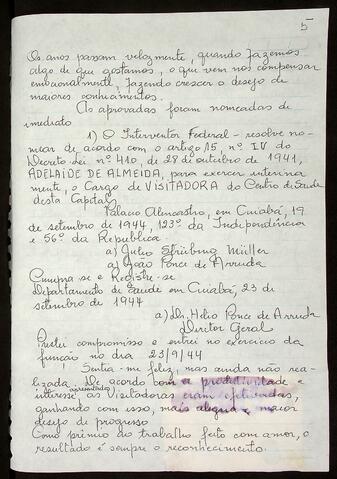 5
Os anos passam velozmente, quando fazemos
algo de que gostamos, o que vem nos compensar
emocionalmente, fazendo crescer o desejo de
maiores conhecimentos.
As aprovadas foram nomeadas de
imediato
1) O Interventor Federal - resolve no-
mear de acordo com o artigo 15, nº IV do
Decreto Lei nº 410, de 28 de outubro de 1941,
ADELAIDE DE ALMEIDA, para exercer interina
mente, o Cargo de VISITADORA do Centro de Saúde
desta Capital.
Palácio Alencastro, em Cuiabá, 19
de setembro de 1944, 123º da Independência
e 56º da República -
a) Júlio Strübing Müller
a) João Ponce de Arruda
Cumpra-se e Registre-se
Departamento de Saúde em Cuiabá, 23 de
setembro de 1944
a) Dr. Hélio Ponce de Arruda
Diretor Geral
Prestei compromisso e entrei no exercício da
função no dia 23/9/44
Sentia-me feliz, mas ainda não rea-
lizada. De acordo com a produtividade e
interesse apresentados, as Visitadoras eram efetivadas,
ganhando com isso, mais alegria e maior
desejo de progresso
Como prêmio do trabalho feito com amor, o
resultado é sempre o reconhecimento.